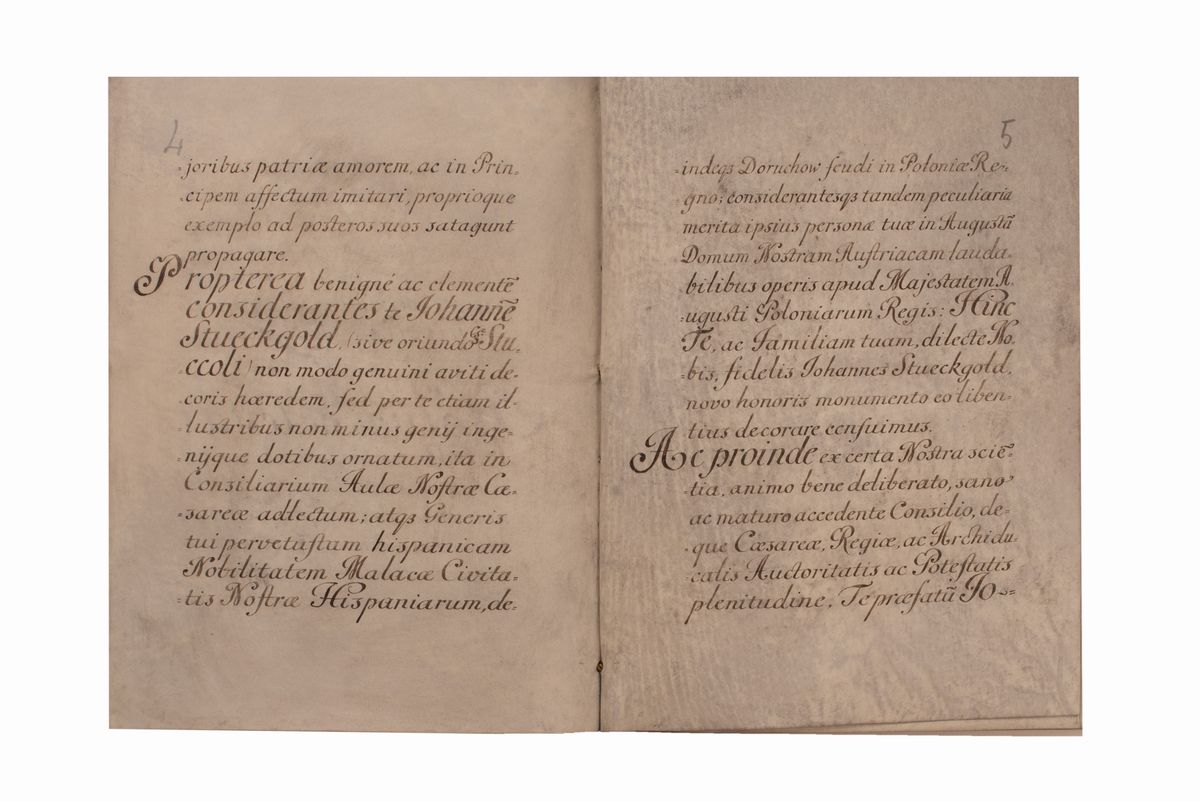 4
=joribus patriæ amorem, ac in Prin=
=cipem affectum imitari, proprioque
exemplo ad posteros suos satagunt
propagare.
Propterea benigné ac clementẽ
considerantes te Johannẽ
Stueckgold, (sive oriundo Stu=
=ccoli) non modo genuini aviti de=
coris hæredem, ſed per te etiam il=
=lustribus non minus genij inge=
=nijque dotibus ornatum, ita in
Consiliarium Aulæ Noſtræ Cæ=
=sareæ adlectum; atqꝫ Generis
tui pervetuſtum hispanicam
Nobilitatem Malacæ Civita=
=tis Noſtræ Hispaniarum, de=
5
=indeqꝫ Doruchow feudi in Poloniæ Re=
=gno; considerantesqꝫ tandem peculiaria
merita ipsius personæ tuæ in Augustã
Domum Nostram Auſtriacam lauda=
=bilibus operis apud Majestatem A=
=ugusti Poloniarum Regis: Hinc
Te, ac Familiam tuam, dilecte No=
=bis, fidelis Johannes Stueckgold,
novo honoris monumento eo liben=
=tius decorare cenſuimus.
Ac proinde ex certa Nostra sciẽ=
=tia, animo bene deliberato, sano
ac maturo accedente Consilio, de=
=que Cæsareæ, Regiæ, ac Archidu=
=calis Auctoritatis ac Poteſtatis
plenitudine, Te præfatũ Jo=